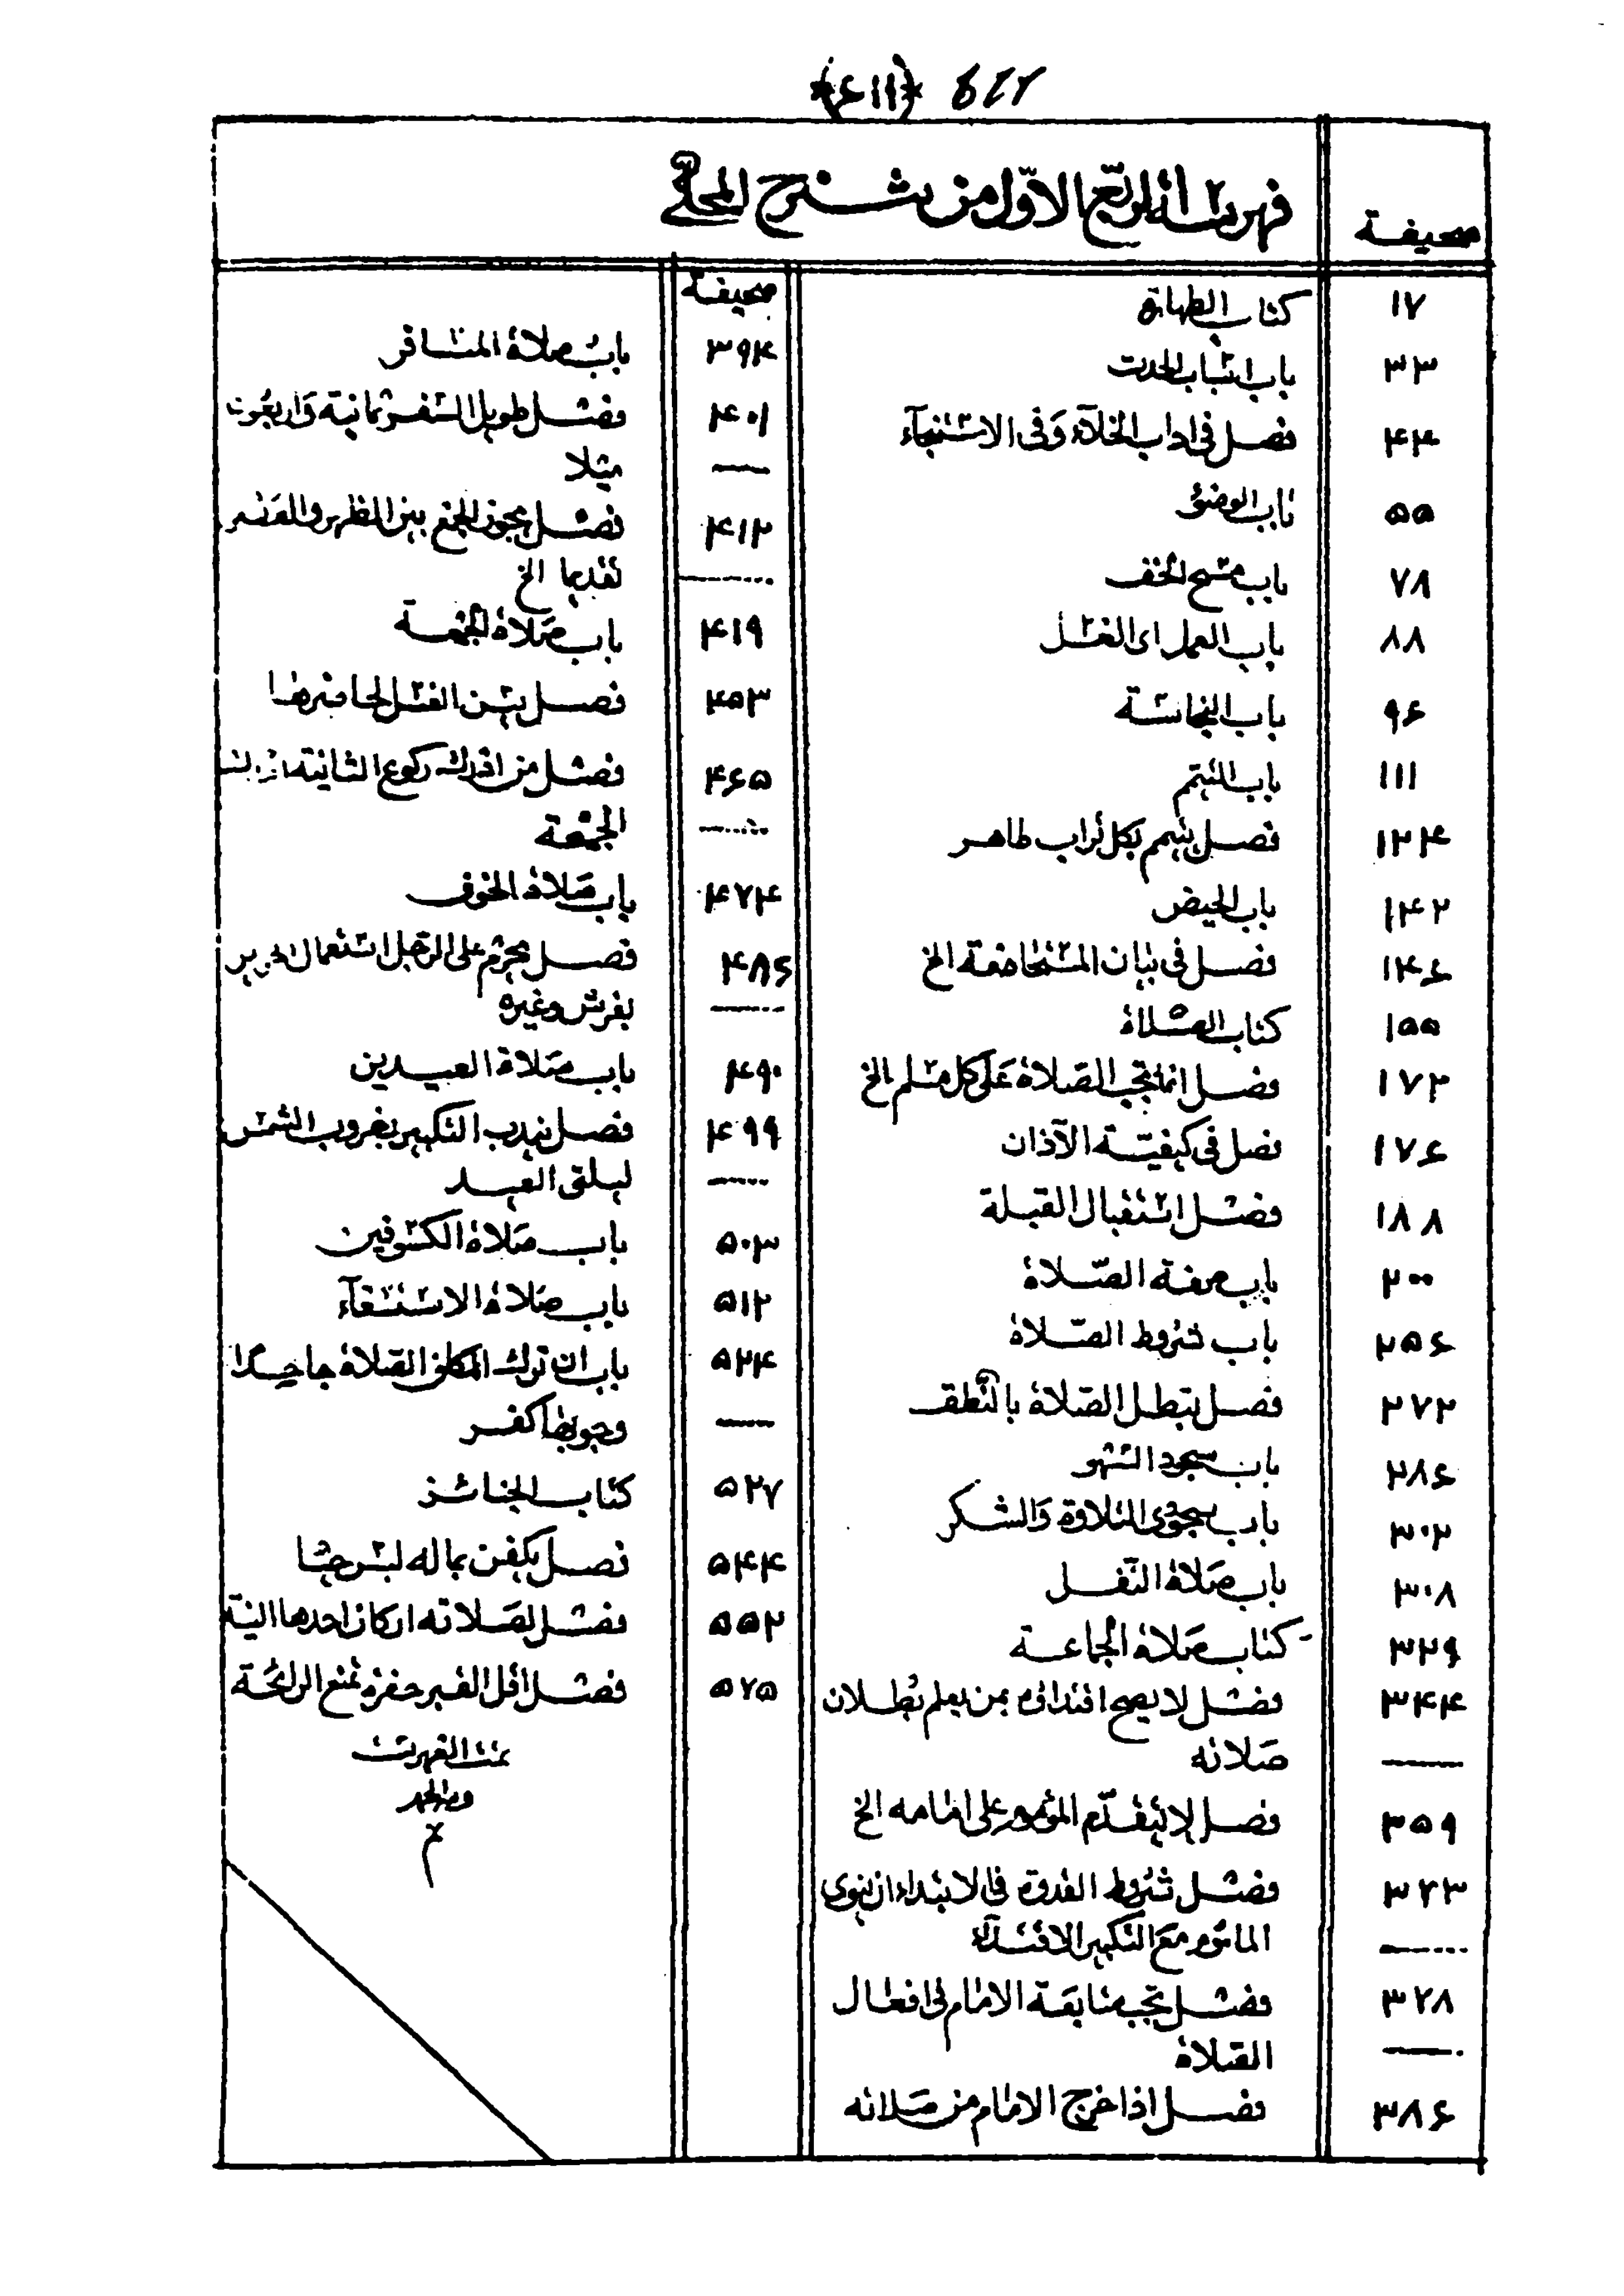 ﴿٦١١﴾
فهرست الربع الاول من شرح المحلى
صحيفة
١٧ كتاب الطهارة
٣٣ باب اسباب الحدث
٤٤ فصل فى اداب الخلآء وفى الاستنجآء
٥٥ باب الوضوء
٧٨ باب مسح الخف
٨٨ باب الغسل
٩٦ باب النجاسة
١١١ باب التيمم
١٣٤ فصل يتيمم بكل تراب طاهر
١٤٢ باب الحيض
١٤٦ فصل فى بيان المستحاضة الخ
١٥٥ كتاب الصلاة
١٧٢ فصل انما تجب الصلاة على كل مسلم الخ
١٧٦ فصل فى كيفية الآذان
١٨٨ فصل استقبال القبلة
٢٠٠ باب صفة الصلاة
٢٥٦ باب شروط الصلاة
٢٧٢ فصل تبطل الصلاة بالنطق
٢٨٦ باب سجود السهو
٣٠٢ باب سجودى التلاوة والشكر
٣٠٨ باب صلاة النفل
٣٢٩ كتاب صلاة الجماعة
٣٤٤ فصل لا يصح اقتدائه بمن يعلم بطلان
صلاته
٣٥٩ فصل لا يتقدم المؤموم على امامه الخ
٣٧٣ فصل شروط القدوة فى الابتداء ان ينوى
الماموم مع التكبير الاقتدآء
٣٧٨ فصل تجب متابعة الامام فى افعال
الصلاة
٣٨٦ فصل اذا خرج الامام من صلاته
صحيفة
٣٩٤ باب صلاة المسافر
٤٠١ فصل طويل السفر ثمانية واربعون
ميلا
٤١٢ فصل يجوز الجمع بين الظهر والعصر
تقديما الخ
٤١٩ باب صلاة الجمعة
٤٥٣ فصل يسن الغسل لحاضرها
٤٦٥ فصل من ادرك ركوع الثانية
الجمعة
٤٧٤ باب صلاة الخوف
٤٨٦ فصل يحرم على الرجل استعمال الحرير
بفرش وغيره
٤٩٠ باب صلاة العيدين
٤٩٩ فصل يندب التكبير بغروب الشمس
ليلتى العيد
٥٠٣ باب صلاة الكسوفين
٥١٢ باب صلاة الاستسقآء
٥٢٤ باب ان ترك المكلف الصلاة جاحدا
وجوبها كفر
٥٢٧ كتاب الجنائز
٥٤٤ فصل يكفن بما له لبسه حيا
٥٥٢ فصل لصلاته اركان احدها النية
٥٧٥ فصل اقل القبر حفرة تمنع الرائحة
تمت الفهرست
م